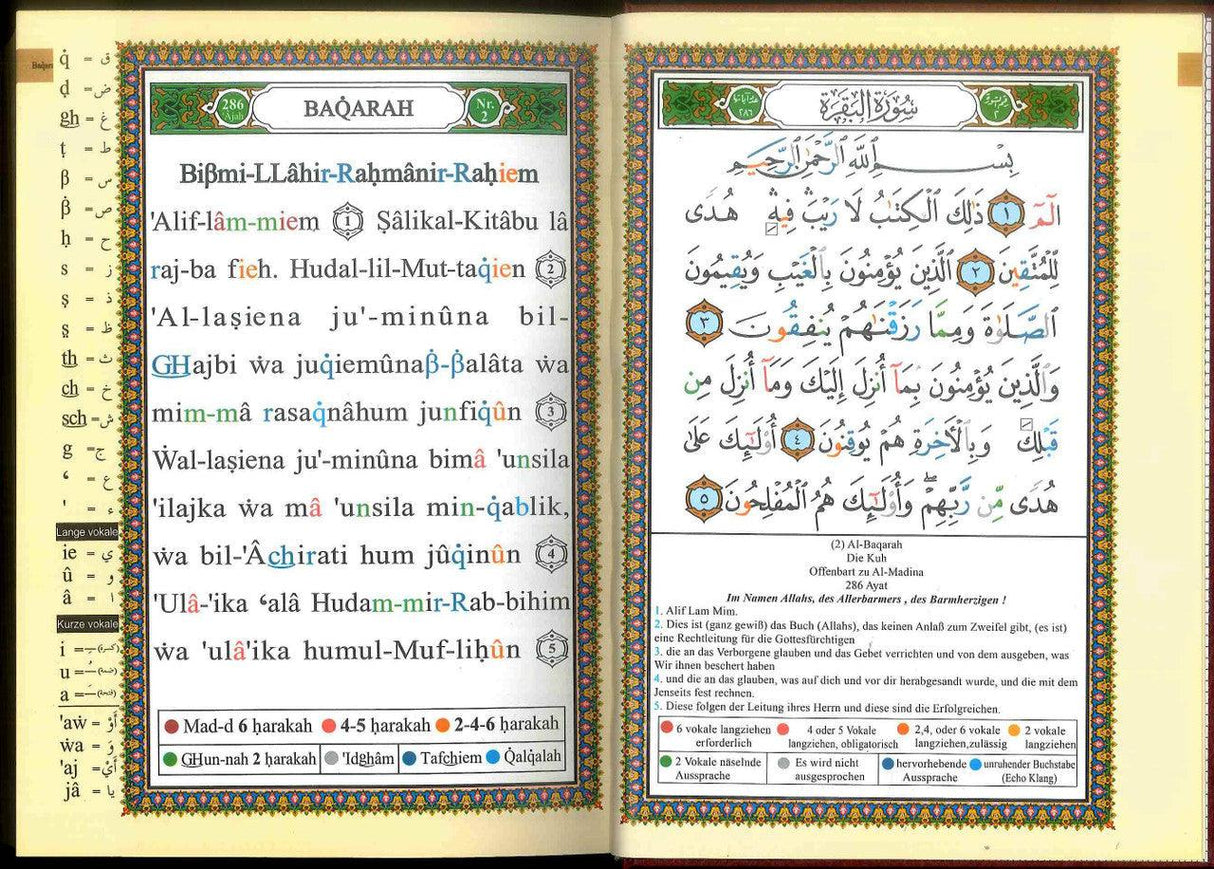 Baqara
q̇ = ق
ḍ = ض
gh = غ
ṭ = ط
β = س
β̇ = ص
ḥ = ح
s = ز
ş = ذ
ṣ̌ = ظ
th = ث
ch = خ
sch = ش
g = ج
ʻ = ع
' = ء
Lange vokale
ie = ي
û = و
â = ا
Kurze vokale
i = ــِـ (كسرة)
u = ــُـ (ضمة)
a = ــَـ (فتحة)
'aẇ = أَوْ
ẇa = وَ
'aj = أَيْ
jâ = يَا
286 Ajati
BAQ̇ARAH
Nr. 2
Biβmi-LLâhir-Raḥmânir-Raḥiem
'Alif-lâm-miem 1 Şâlikal-Kitâbu lâ
raj-ba fieh. Hudal-lil-Mut-taq̇ien 2
'Al-laşiena ju'-minûna bil-
GHajbi ẇa juq̇iemûnaβ̇-β̇alâta ẇa
mim-mâ rasaq̇nâhum junfiq̇ûn 3
Ẇal-laşiena ju'-minûna bimâ 'unsila
'ilajka ẇa mâ 'unsila min-q̇ablik,
ẇa bil-'Âchirati hum jûq̇inûn 4
'Ulâ-'ika ʻalâ Hudam-mir-Rab-bihim
ẇa 'ulâ'ika humul-Muf-liḥûn 5
Mad-d 6 ḥarakah 4-5 ḥarakah 2-4-6 ḥarakah
GHun-nah 2 ḥarakah 'Idghâm Tafchiem Q̇alqalah
عدد آياتها ٢٨٦
سُورَةُ البَقَرَةِ
رقم السورة ٢
بِسْمِ ٱللَّهِ ٱلرَّحْمَٰنِ ٱلرَّحِيمِ
الٓمٓ ١ ذَٰلِكَ ٱلْكِتَٰبُ لَا رَيْبَ ۛ فِيهِ ۛ هُدًى
لِّلْمُتَّقِينَ ٢ ٱلَّذِينَ يُؤْمِنُونَ بِٱلْغَيْبِ وَيُقِيمُونَ
ٱلصَّلَوٰةَ وَمِمَّا رَزَقْنَٰهُمْ يُنفِقُونَ ٣
وَٱلَّذِينَ يُؤْمِنُونَ بِمَآ أُنزِلَ إِلَيْكَ وَمَآ أُنزِلَ مِن
قَبْلِكَ وَبِٱلْأَخِرَةِ هُمْ يُوقِنُونَ ٤ أُو۟لَٰٓئِكَ عَلَىٰ
هُدًى مِّن رَّبِّهِمْ ۖ وَأُو۟لَٰٓئِكَ هُمُ ٱلْمُفْلِحُونَ ٥
(2) Al-Baqarah
Die Kuh
Offenbart zu Al-Madina
286 Ayat
Im Namen Allahs, des Allerbarmers , des Barmherzigen !
1. Alif Lam Mim.
2. Dies ist (ganz gewiß) das Buch (Allahs), das keinen Anlaß zum Zweifel gibt, (es ist)
eine Rechtleitung für die Gottesfürchtigen
3. die an das Verborgene glauben und das Gebet verrichten und von dem ausgeben, was
Wir ihnen beschert haben
4. und die an das glauben, was auf dich und vor dir herabgesandt wurde, und die mit dem
Jenseits fest rechnen.
5. Diese folgen der Leitung ihres Herrn und diese sind die Erfolgreichen.
6 vokale langziehen erforderlich
4 oder 5 Vokale langziehen, obligatorisch
2,4, oder 6 vokale langziehen,zulässig
2 vokale langziehen
2 Vokale näselnde Aussprache
Es wird nicht ausgesprochen
hervorhebende Aussprache
unruhender Buchstabe (Echo Klang)